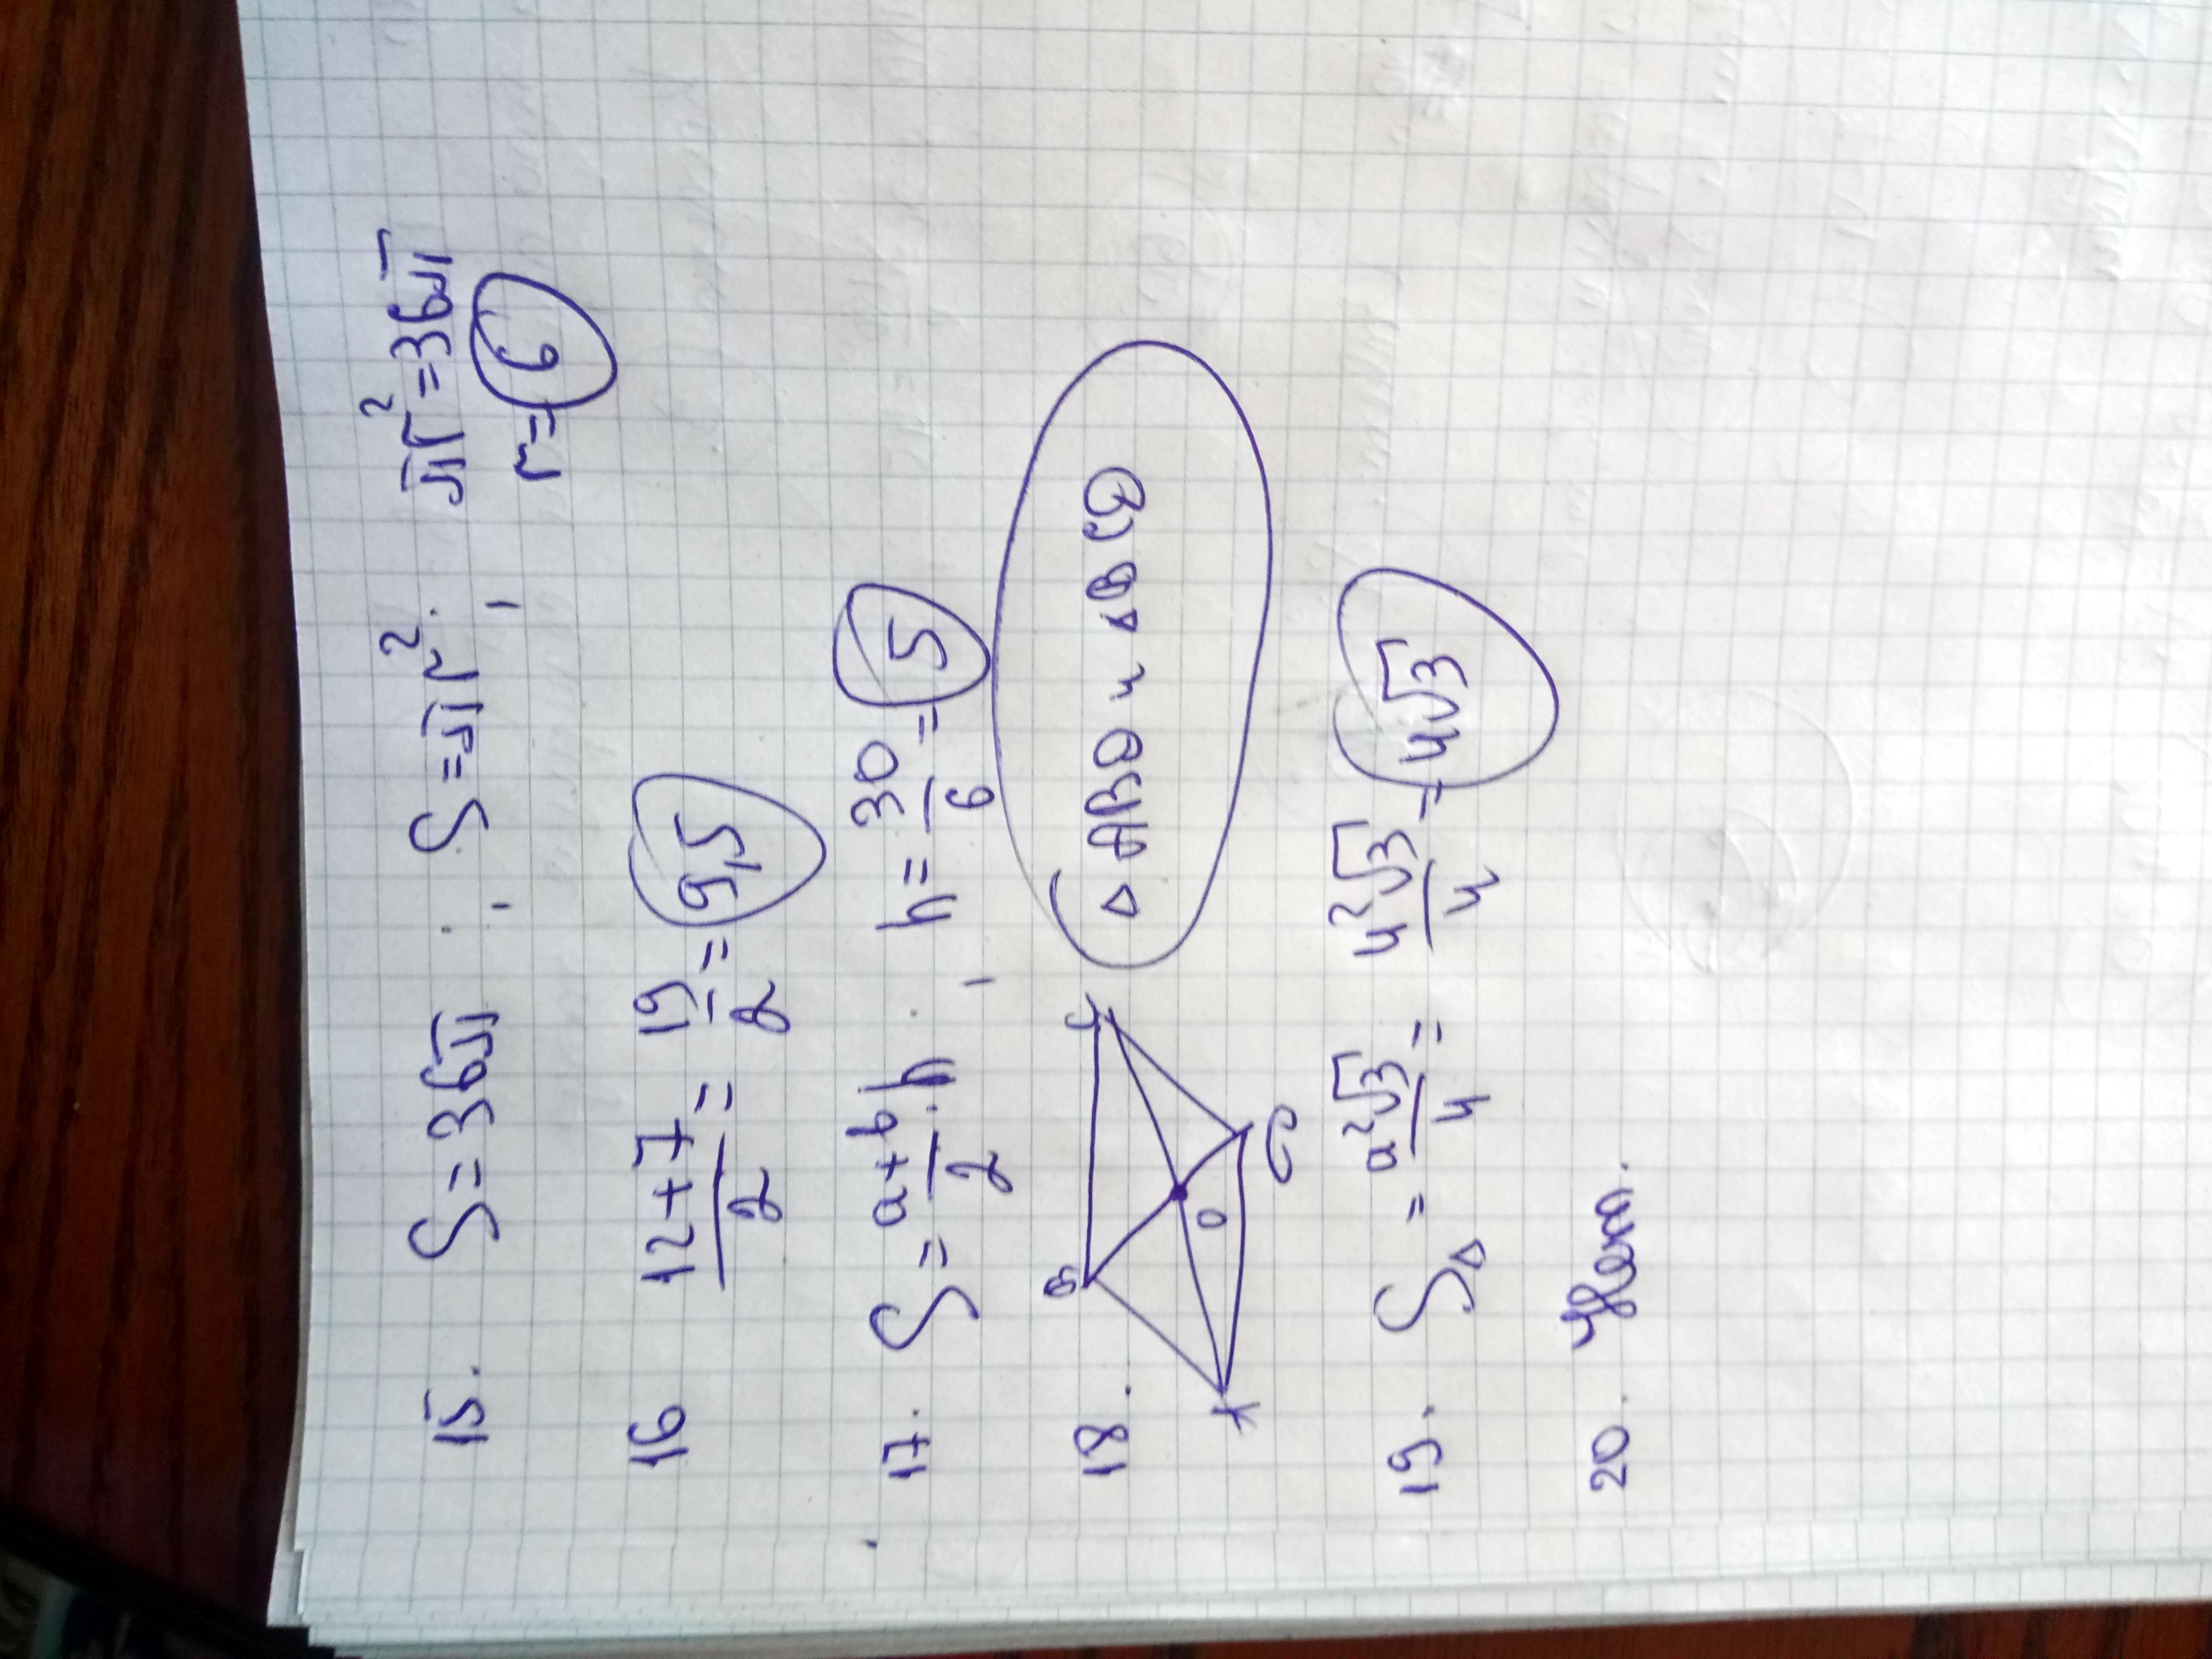 15. S = 36π ; S = πr² ; πr² = 36π
r = 6
16 12+7/2 = 19/2 = 9,5
17. S = a+b/2 · h ; h = 30/6 = 5
18. A B C D O △ABO и △OCD
19. S△ = a²√3/4 = 4²√3/4 = 4√3
20. Нет.